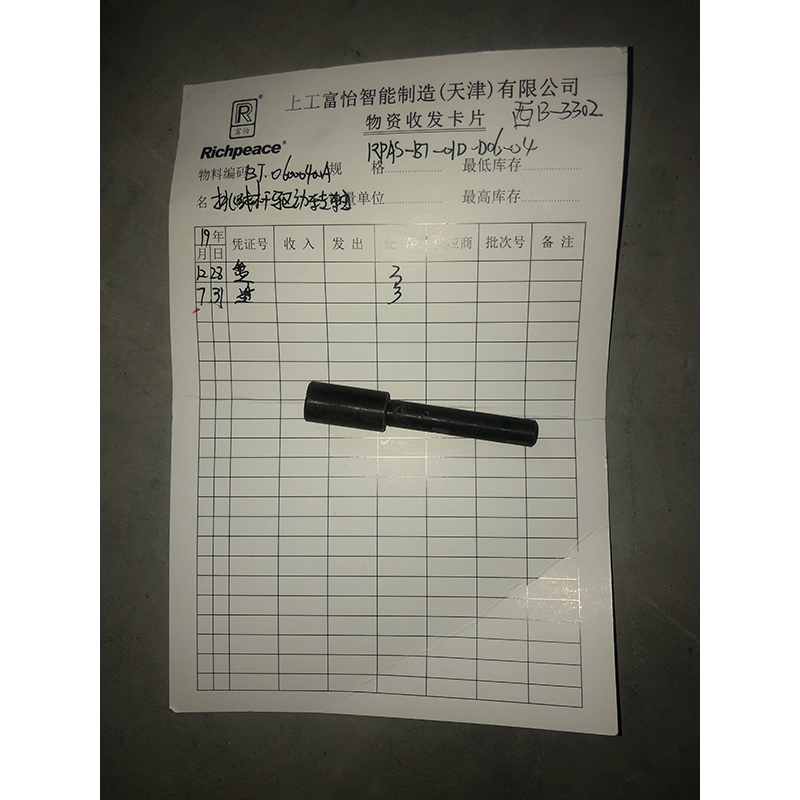 R
富怡
Richpeace
上工富怡智能制造(天津)有限公司
物资收发卡片
西B-3302
物料编码 BT.060004001A 规格 RPAS-BT-01D-D06-04 最低库存
名 驱动 量单位 最高库存
19年 凭证号 收入 发出 应商 批次号 备注
月 日
12 28 3
7 31 3